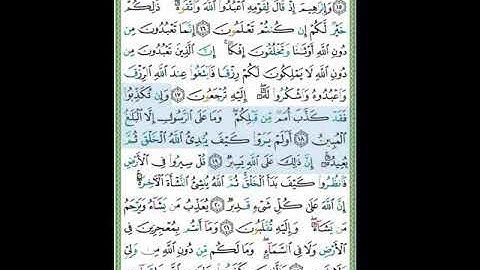 ١٥ وَإِبْرَٰهِيمَ إِذْ قَالَ لِقَوْمِهِ ٱعْبُدُوا۟ ٱللَّهَ وَٱتَّقُوهُ ۖ ذَٰلِكُمْ
خَيْرٌ لَّكُمْ إِن كُنتُمْ تَعْلَمُونَ ١٦ إِنَّمَا تَعْبُدُونَ مِن
دُونِ ٱللَّهِ أَوْثَٰنًا وَتَخْلُقُونَ إِفْكًا ۚ إِنَّ ٱلَّذِينَ تَعْبُدُونَ مِن
دُونِ ٱللَّهِ لَا يَمْلِكُونَ لَكُمْ رِزْقًا فَٱبْتَغُوا۟ عِندَ ٱللَّهِ ٱلرِّزْقَ
وَٱعْبُدُوهُ وَٱشْكُرُوا۟ لَهُۥٓ ۖ إِلَيْهِ تُرْجَعُونَ ١٧ وَإِن تُكَذِّبُوا۟
فَقَدْ كَذَّبَ أُمَمٌ مِّن قَبْلِكُمْ ۖ وَمَا عَلَى ٱلرَّسُولِ إِلَّا ٱلْبَلَٰغُ
ٱلْمُبِينُ ١٨ أَوَلَمْ يَرَوْا۟ كَيْفَ يُبْدِئُ ٱللَّهُ ٱلْخَلْقَ ثُمَّ
يُعِيدُهُۥٓ ۚ إِنَّ ذَٰلِكَ عَلَى ٱللَّهِ يَسِيرٌ ١٩ قُلْ سِيرُوا۟ فِى ٱلْأَرْضِ
فَٱنظُرُوا۟ كَيْفَ بَدَأَ ٱلْخَلْقَ ۚ ثُمَّ ٱللَّهُ يُنشِئُ ٱلنَّشْأَةَ ٱلْأَخِرَةَ ۚ
إِنَّ ٱللَّهَ عَلَىٰ كُلِّ شَىْءٍ قَدِيرٌ ٢٠ يُعَذِّبُ مَن يَشَآءُ وَيَرْحَمُ
مَن يَشَآءُ ۖ وَإِلَيْهِ تُقْلَبُونَ ٢١ وَمَآ أَنتُم بِمُعْجِزِينَ فِى
ٱلْأَرْضِ وَلَا فِى ٱلسَّمَآءِ ۖ وَمَا لَكُم مِّن دُونِ ٱللَّهِ مِن وَلِىٍّ